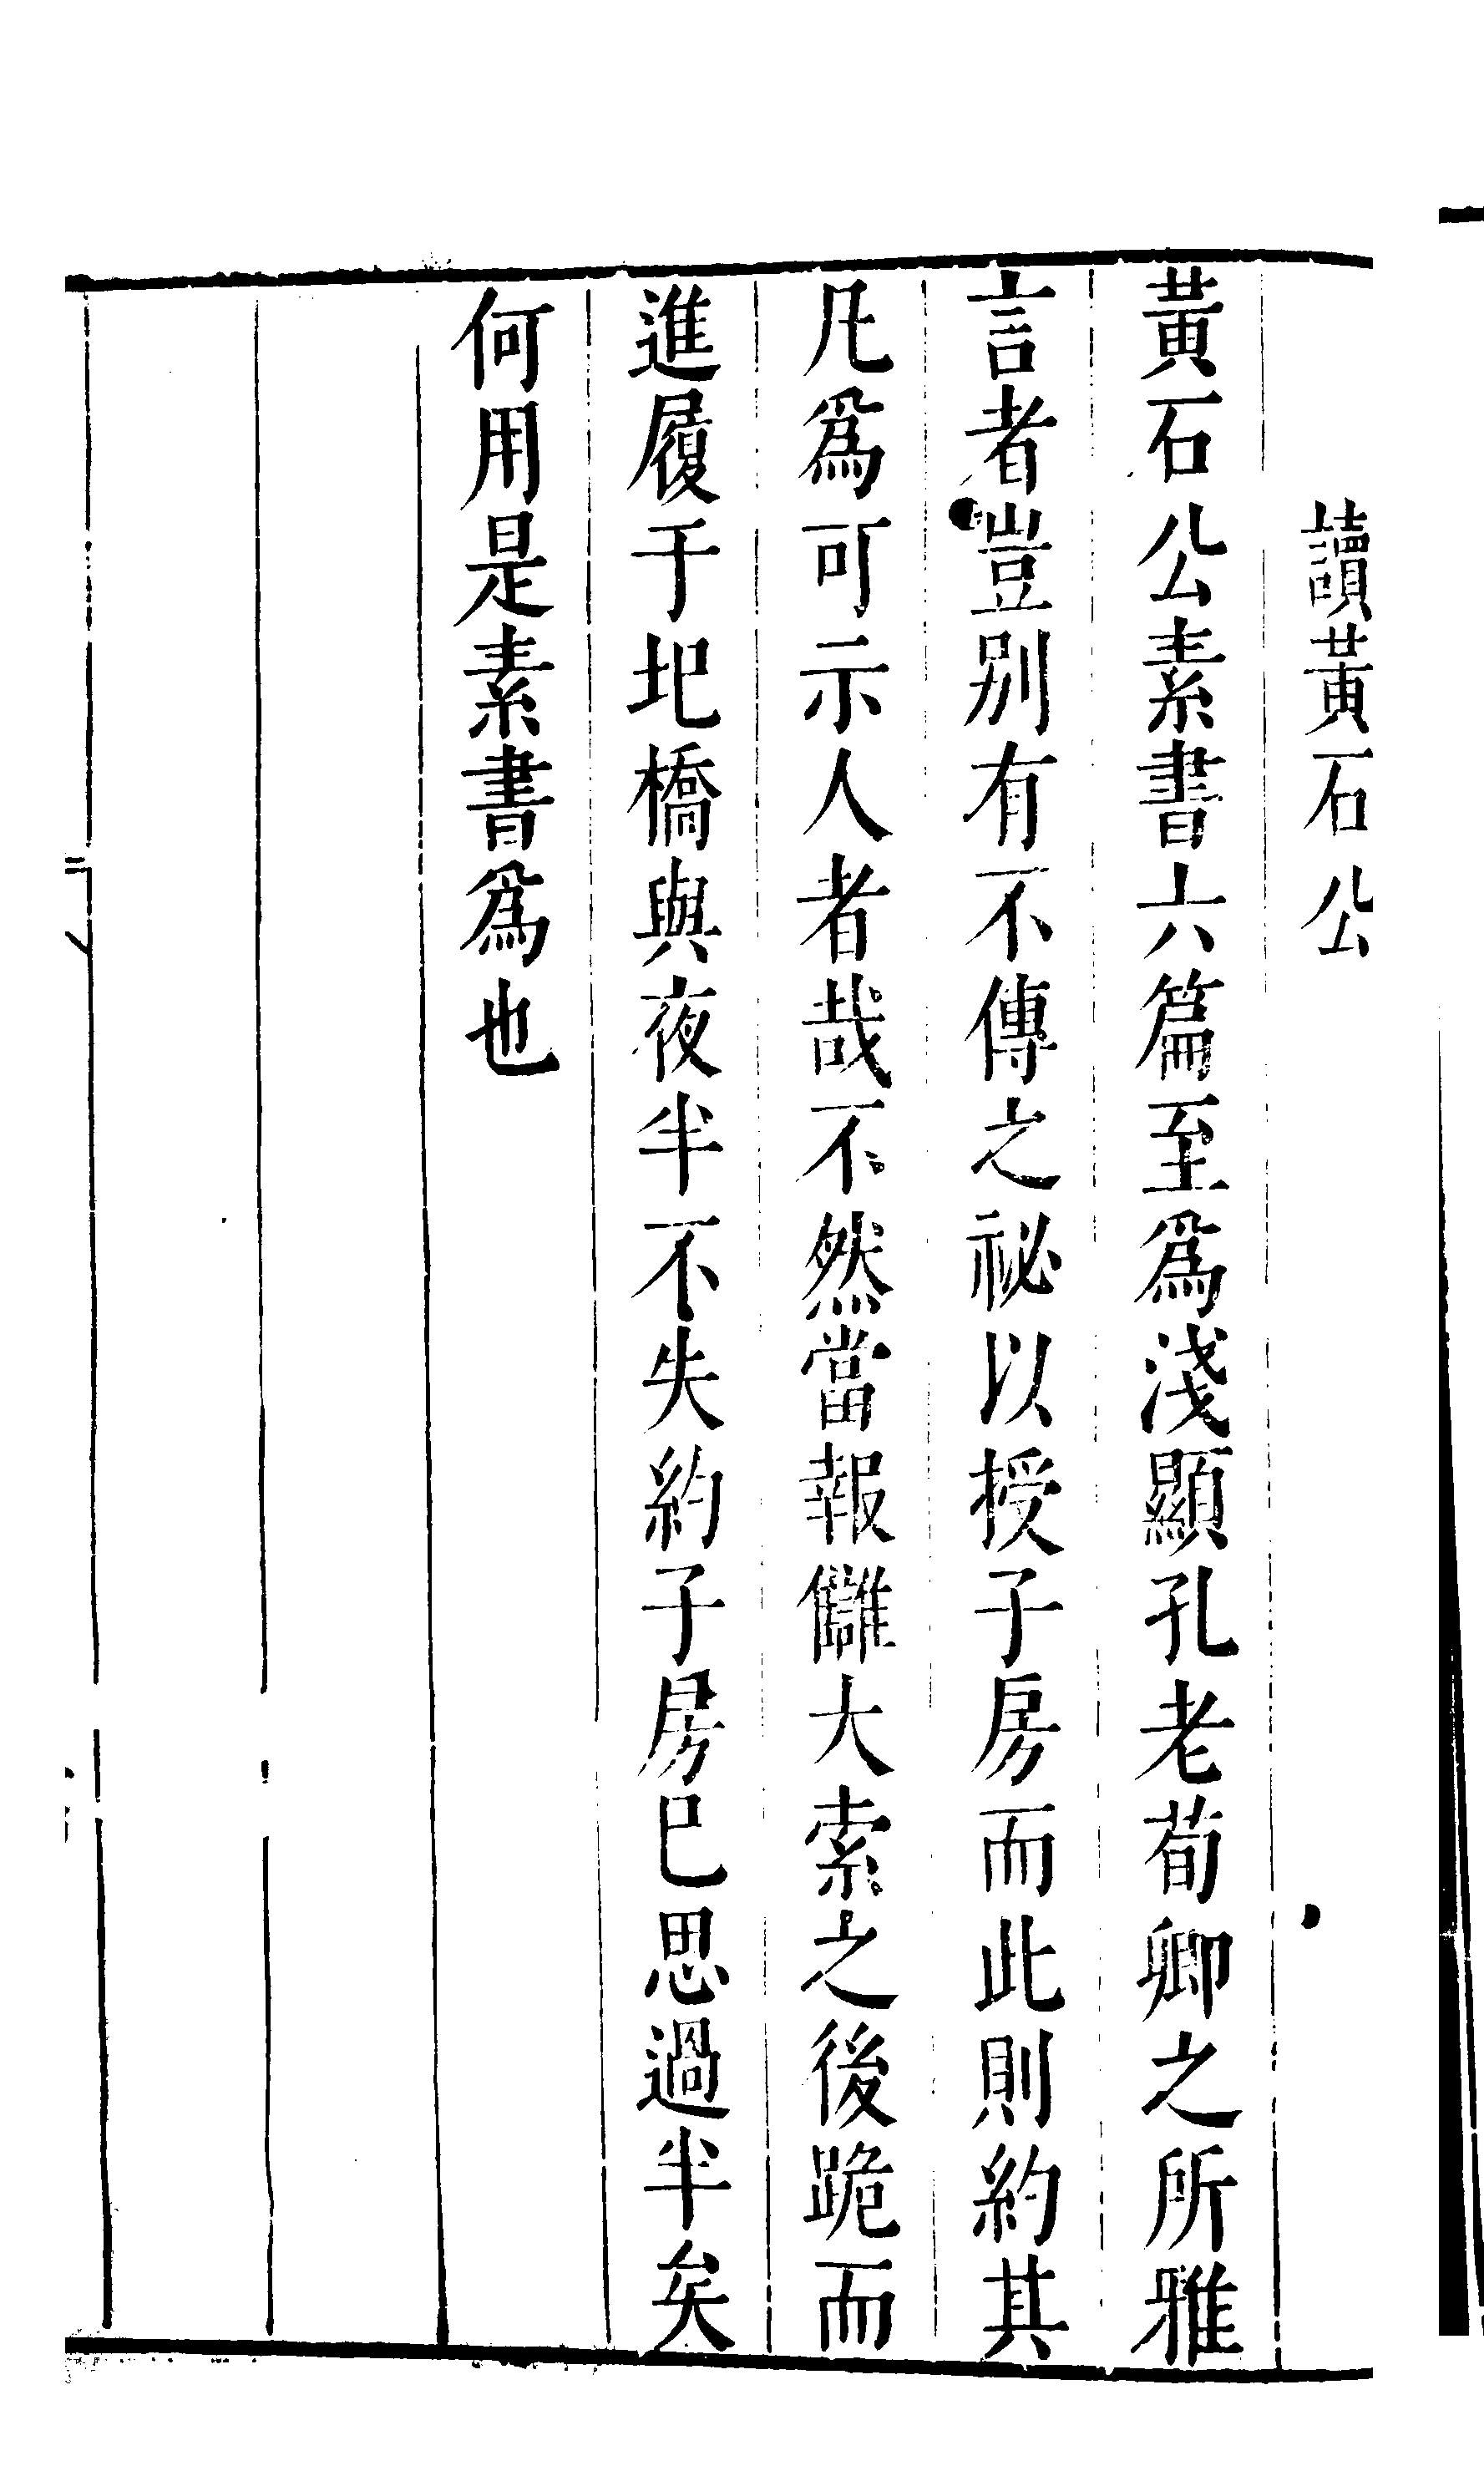 讀黃石公
黃石公素書六篇至爲淺顯孔老荀卿之所雅
言者豈別有不傳之祕以授子房而此則約其
凡爲可示人者哉不然當報讎大索之後跪而
進履于圯橋與夜半不失約子房已思過半矣
何用是素書爲也